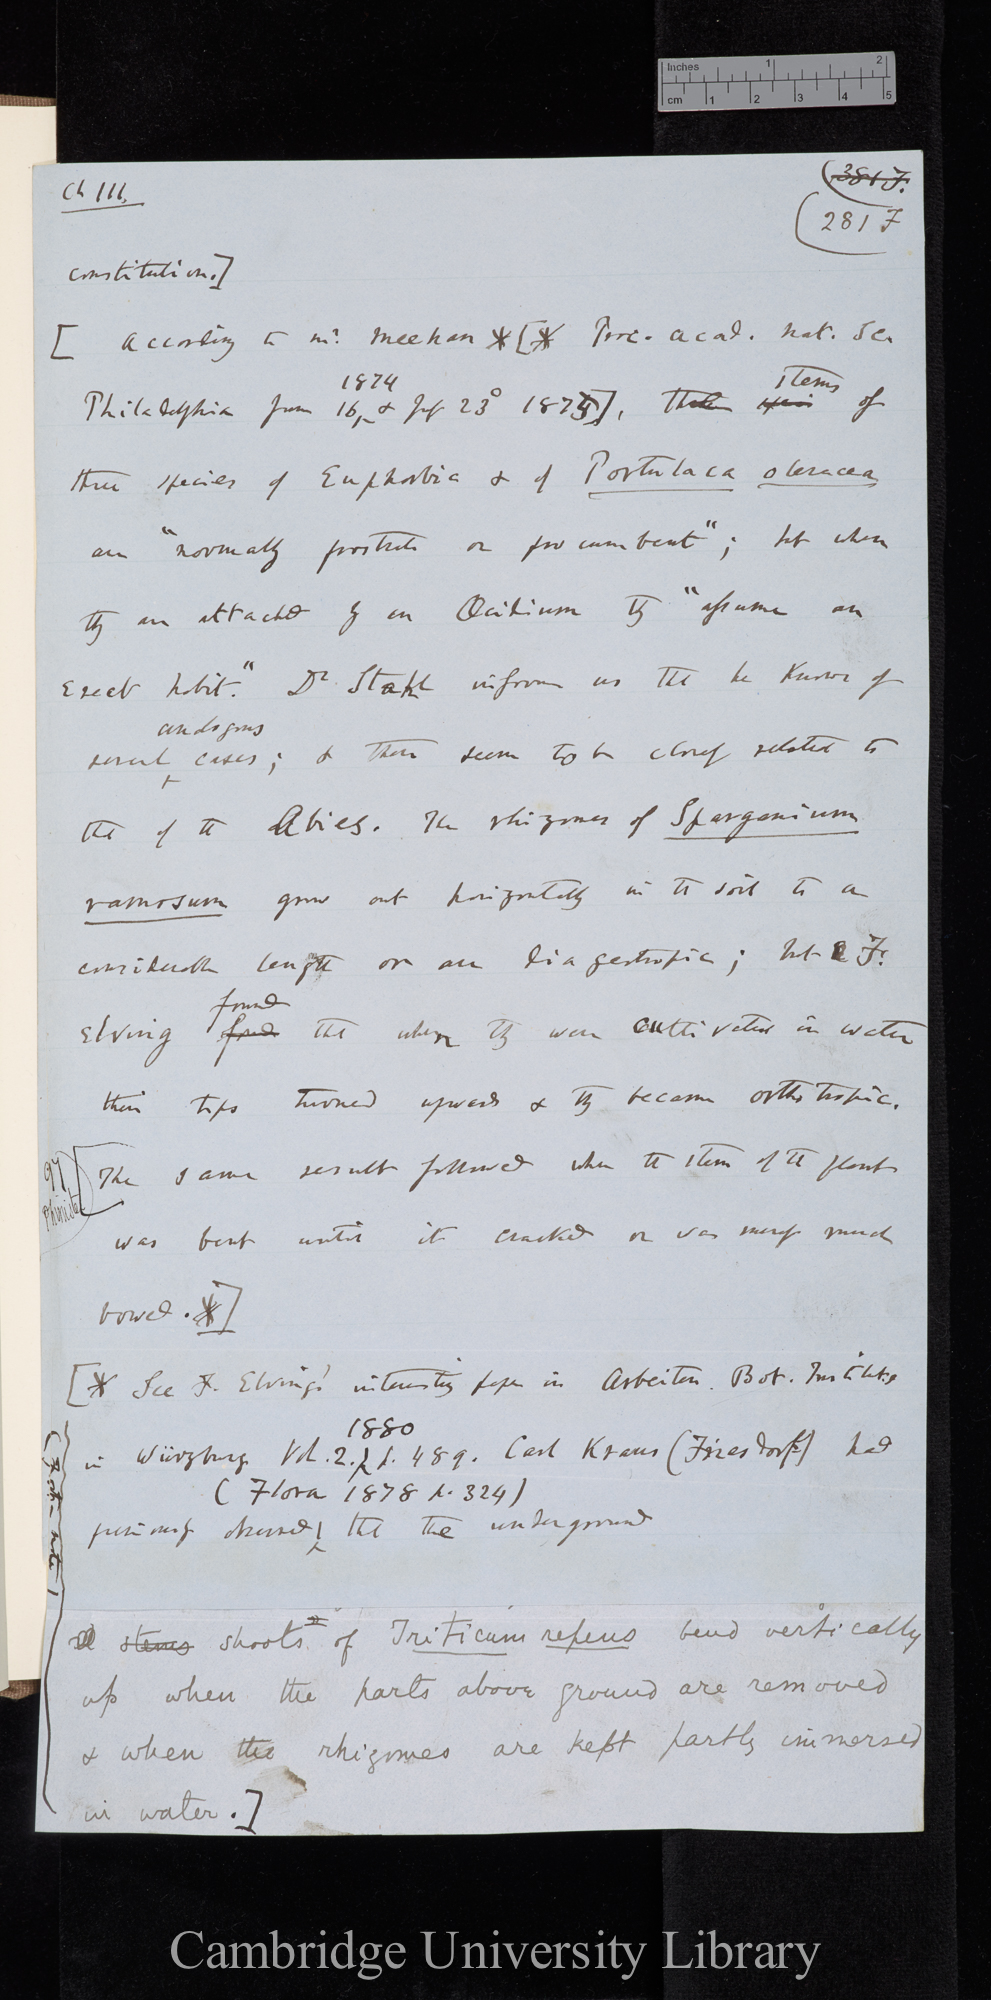 Inches 1 2
cm 1 2 3 4 5
Ch III.
381 F.
281 F
constitution.]
[ According to Mr. Meehan *[* Proc. Acad. Nat. Sc.
1874
stems
Philadelphia June 16, & July 23d 1875], of
three species of Euphorbia & of Portulaca oleracea
are "normally prostrate or procumbent"; but when
they are attacked by an Œcidium they "assume an
erect habit." Dr Stahl informs us that he knows of
analogous
several cases; & these seem to be closely related to
that of the Abies. The rhizomes of Sparganium
ramosum grow out horizontally in the soil to a
considerable length or are diageotropic; but F.
found
Elving found that when they were cultivated in water
their tips turned upwards & they became orthotropic.
[The same result followed when the stem of the plant
was bent until it cracked or was merely much
bowed.*]
[* See F. Elving's interesting paper in Arbeiten Bot. Institute
1880
in Würzburg Vol. 2. p. 489. Carl Kraus (Triesdorf) had
( Flora 1878 p. 324)
previously observed, that the underground
(Foot-note)
stems shoots of Triticum repens bend vertically
up when the parts above ground are removed
& when the rhizomes are kept partly immersed
in water.]
Cambridge University Library